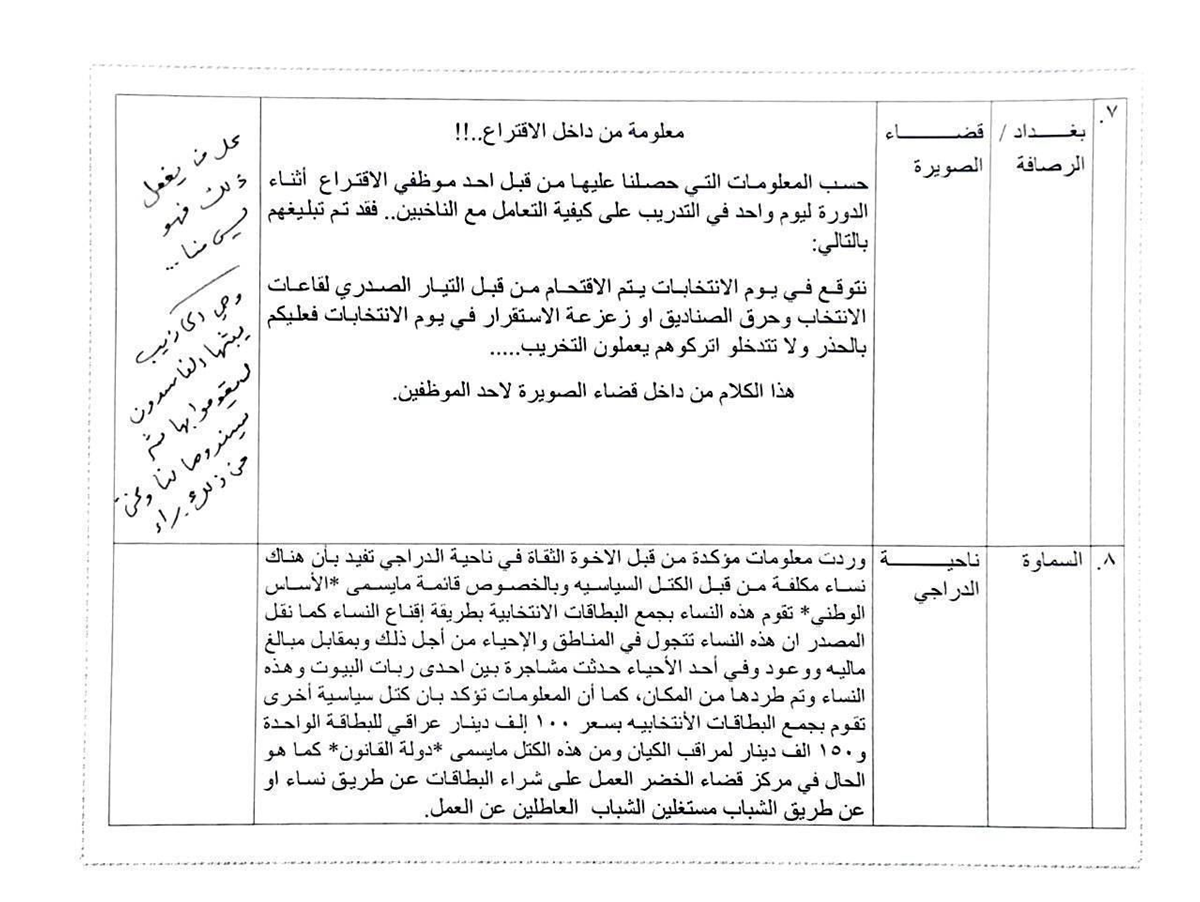 ٧.
بغـــداد /
الرصافة
قضـــــاء
الصويرة
معلومة من داخل الاقتراع..!!
حسب المعلومات التي حصلنا عليها من قبل احد موظفي الاقتراع أثناء
الدورة ليوم واحد في التدريب على كيفية التعامل مع الناخبين.. فقد تم تبليغهم
بالتالي:
نتوقع في يوم الانتخابات يتم الاقتحام من قبل التيار الصدري لقاعات
الانتخاب وحرق الصناديق او زعزعة الاستقرار في يوم الانتخابات فعليكم
بالحذر ولا تتدخلو اتركوهم يعملون التخريب.....
هذا الكلام من داخل قضاء الصويرة لاحد الموظفين.
كل من يفعل
ذلك فهو
ليس منا ...
وهي اكاذيب
يبثها الفاسدون
ليقوموا بها ثم
سيسندوها لنا ونحن
من ذلك براء
٨.
السماوة
ناحيـــــة
الدراجي
وردت معلومات مؤكدة من قبل الاخوة الثقاة في ناحية الدراجي تفيد بأن هناك
نساء مكلفة من قبل الكتل السياسيه وبالخصوص قائمة مايسمى *الأساس
الوطني* تقوم هذه النساء بجمع البطاقات الانتخابية بطريقة إقناع النساء كما نقل
المصدر ان هذه النساء تتجول في المناطق والإحياء من أجل ذلك وبمقابل مبالغ
ماليه ووعود وفي أحد الأحياء حدثت مشاجرة بين احدى ربات البيوت وهذه
النساء وتم طردها من المكان، كما أن المعلومات تؤكد بان كتل سياسية أخرى
تقوم بجمع البطاقات الأنتخابيه بسعر ١٠٠ إلف دينار عراقي للبطاقة الواحدة
و١٥٠ الف دينار لمراقب الكيان ومن هذه الكتل مايسمى *دولة القانون* كما هو
الحال في مركز قضاء الخضر العمل على شراء البطاقات عن طريق نساء او
عن طريق الشباب مستغلين الشباب العاطلين عن العمل.